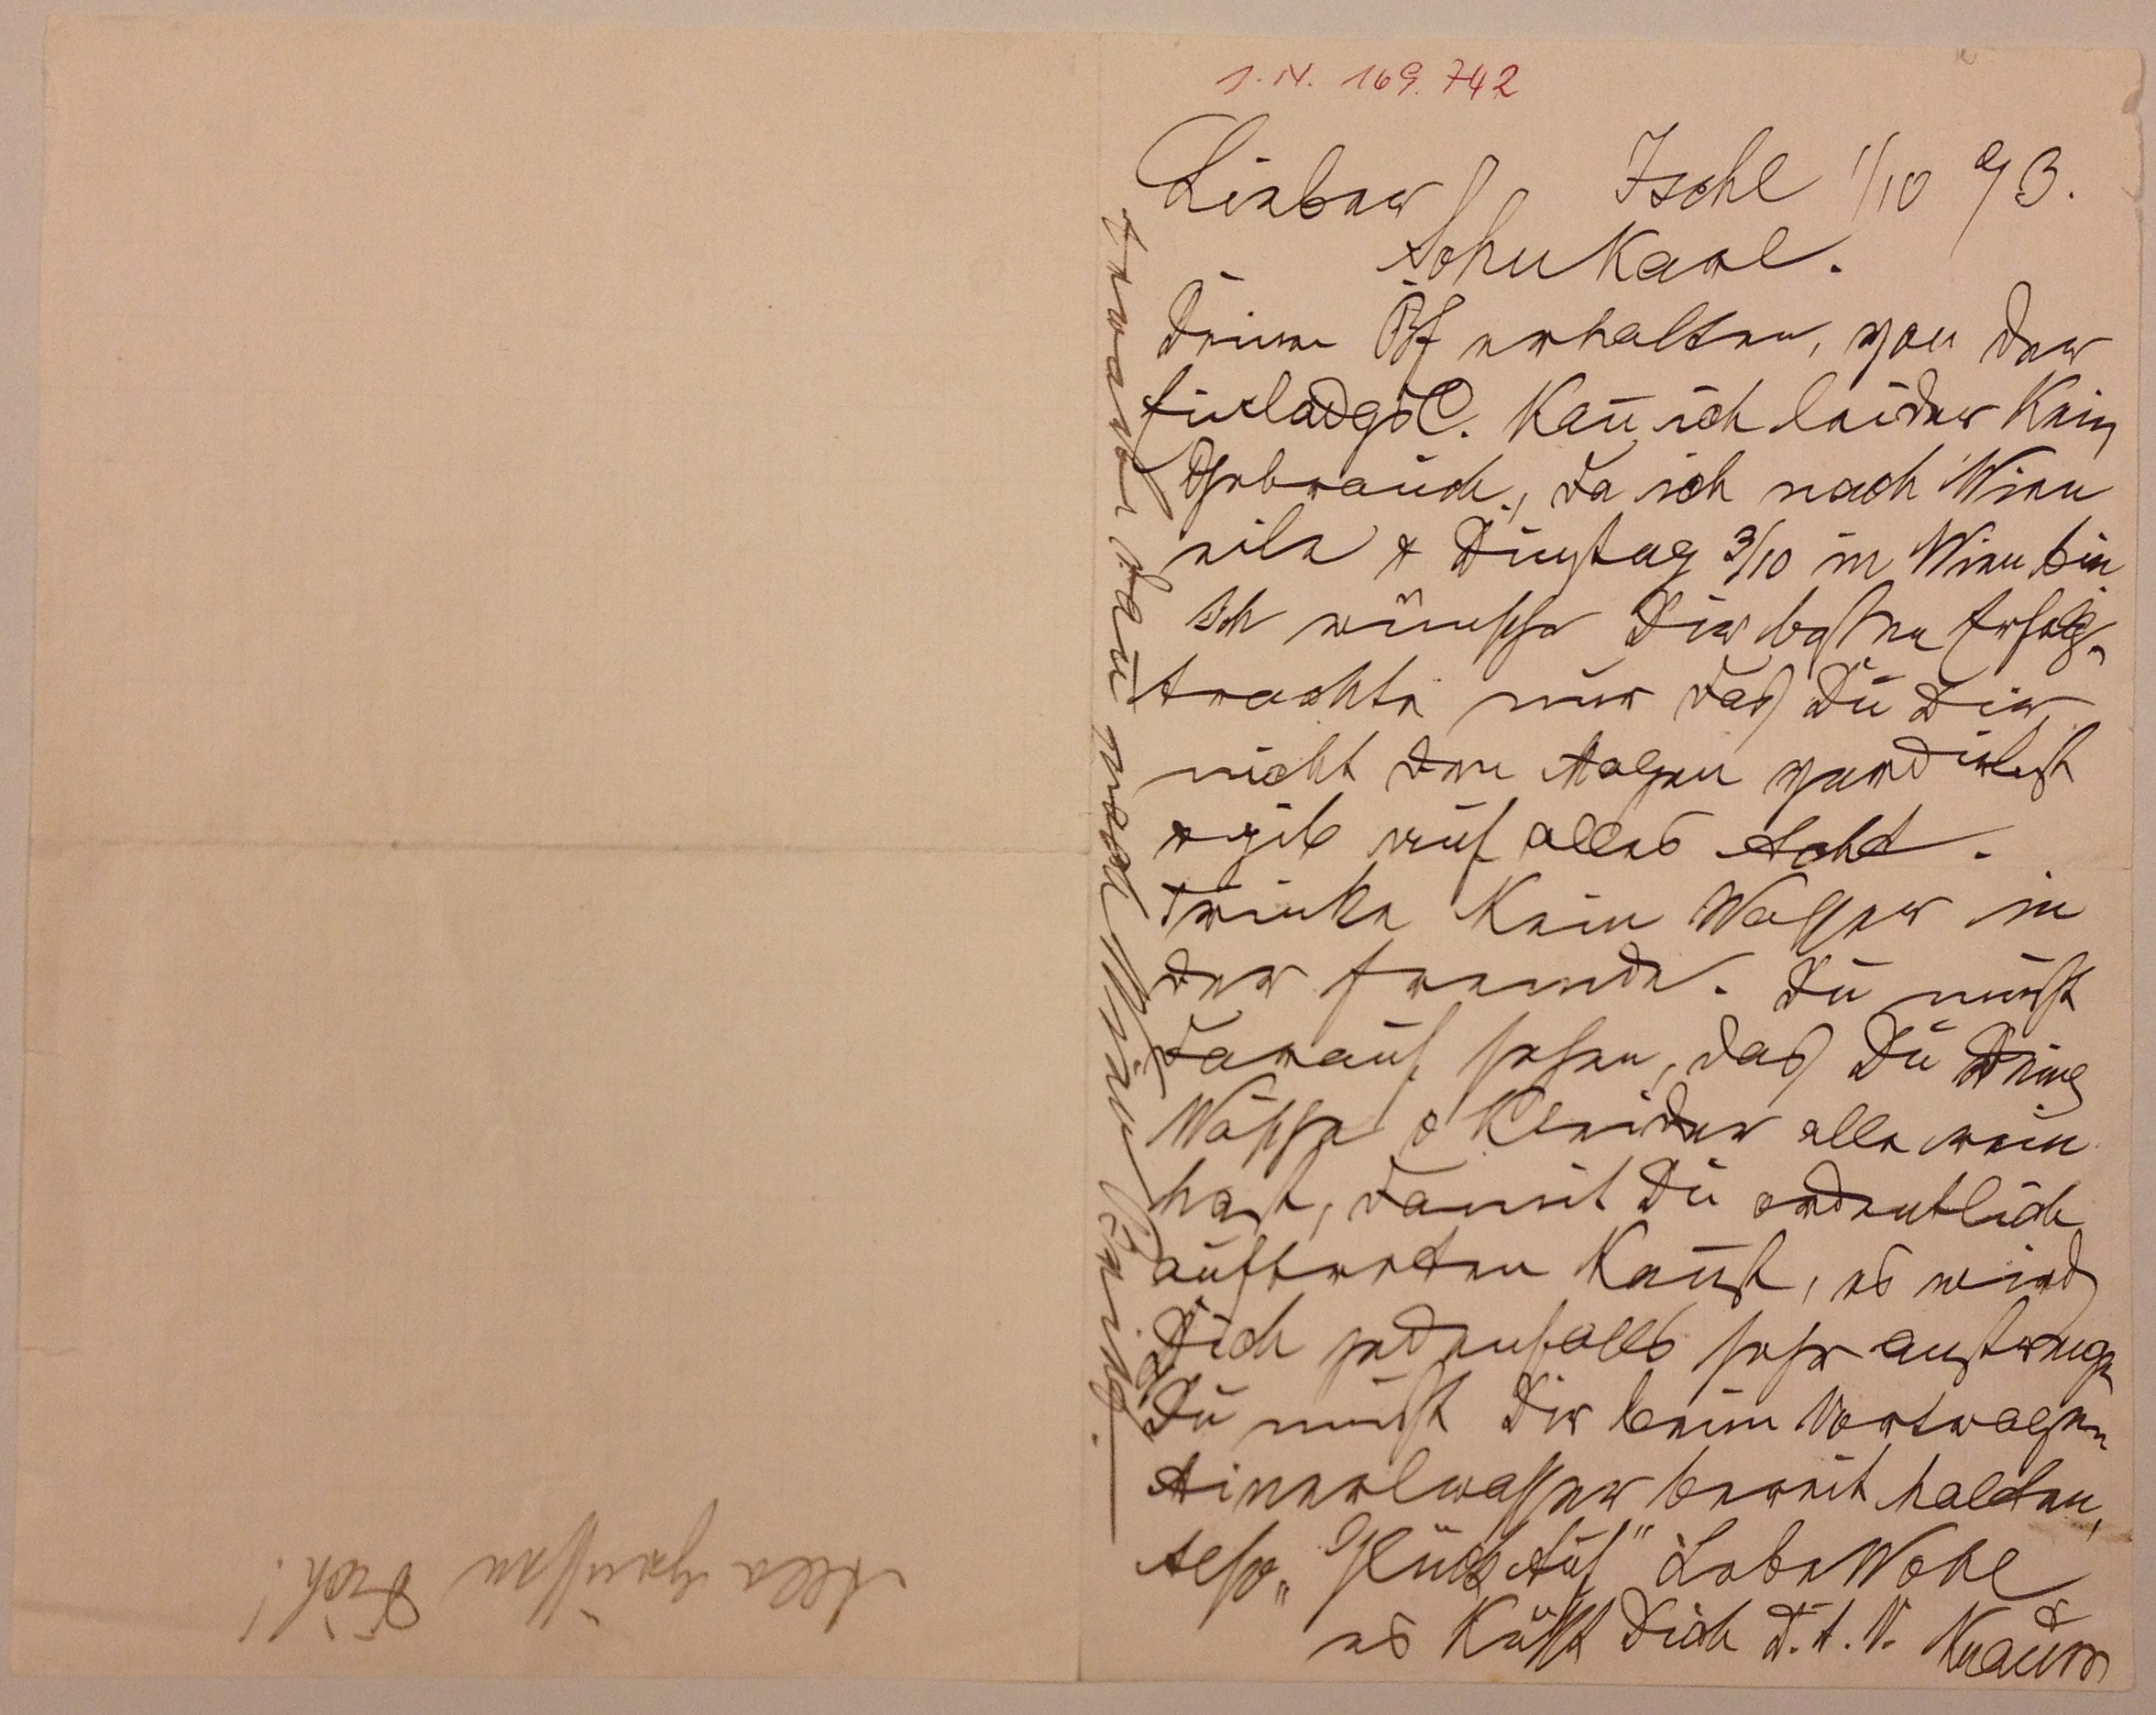 J. N. 169.742
Lieber Ischl 1/10 93.
Sohn Karl.
Deine erhalten, von der
Kañ ich leider Kein
Gebrauch, da ich nach Wien
eile & Dinstag 3/10 in Wien bin
Ich wünsche Dir besten Erfolg,
trachte nur daß Du Dir
nicht den Magen verdirbst
& gib auf alles Acht.
Trinke Kein Wasser in
der Fremde. Du mußt
darauf sehen, daß Du Deine
Wäsche & Kleider alle rein
hast, damit Du ordentlich
auftreten Kañst, es wird
Dich jedenfalls sehr anstrengen
Du mußt Dir beim Vortragen
Mineralwasser bereit halten,
Also „Glück Auf" Lebe Wohl
es Küßt Dich D. t. V. Kraus
dañ nach Wien
Alle grüßen Dich!